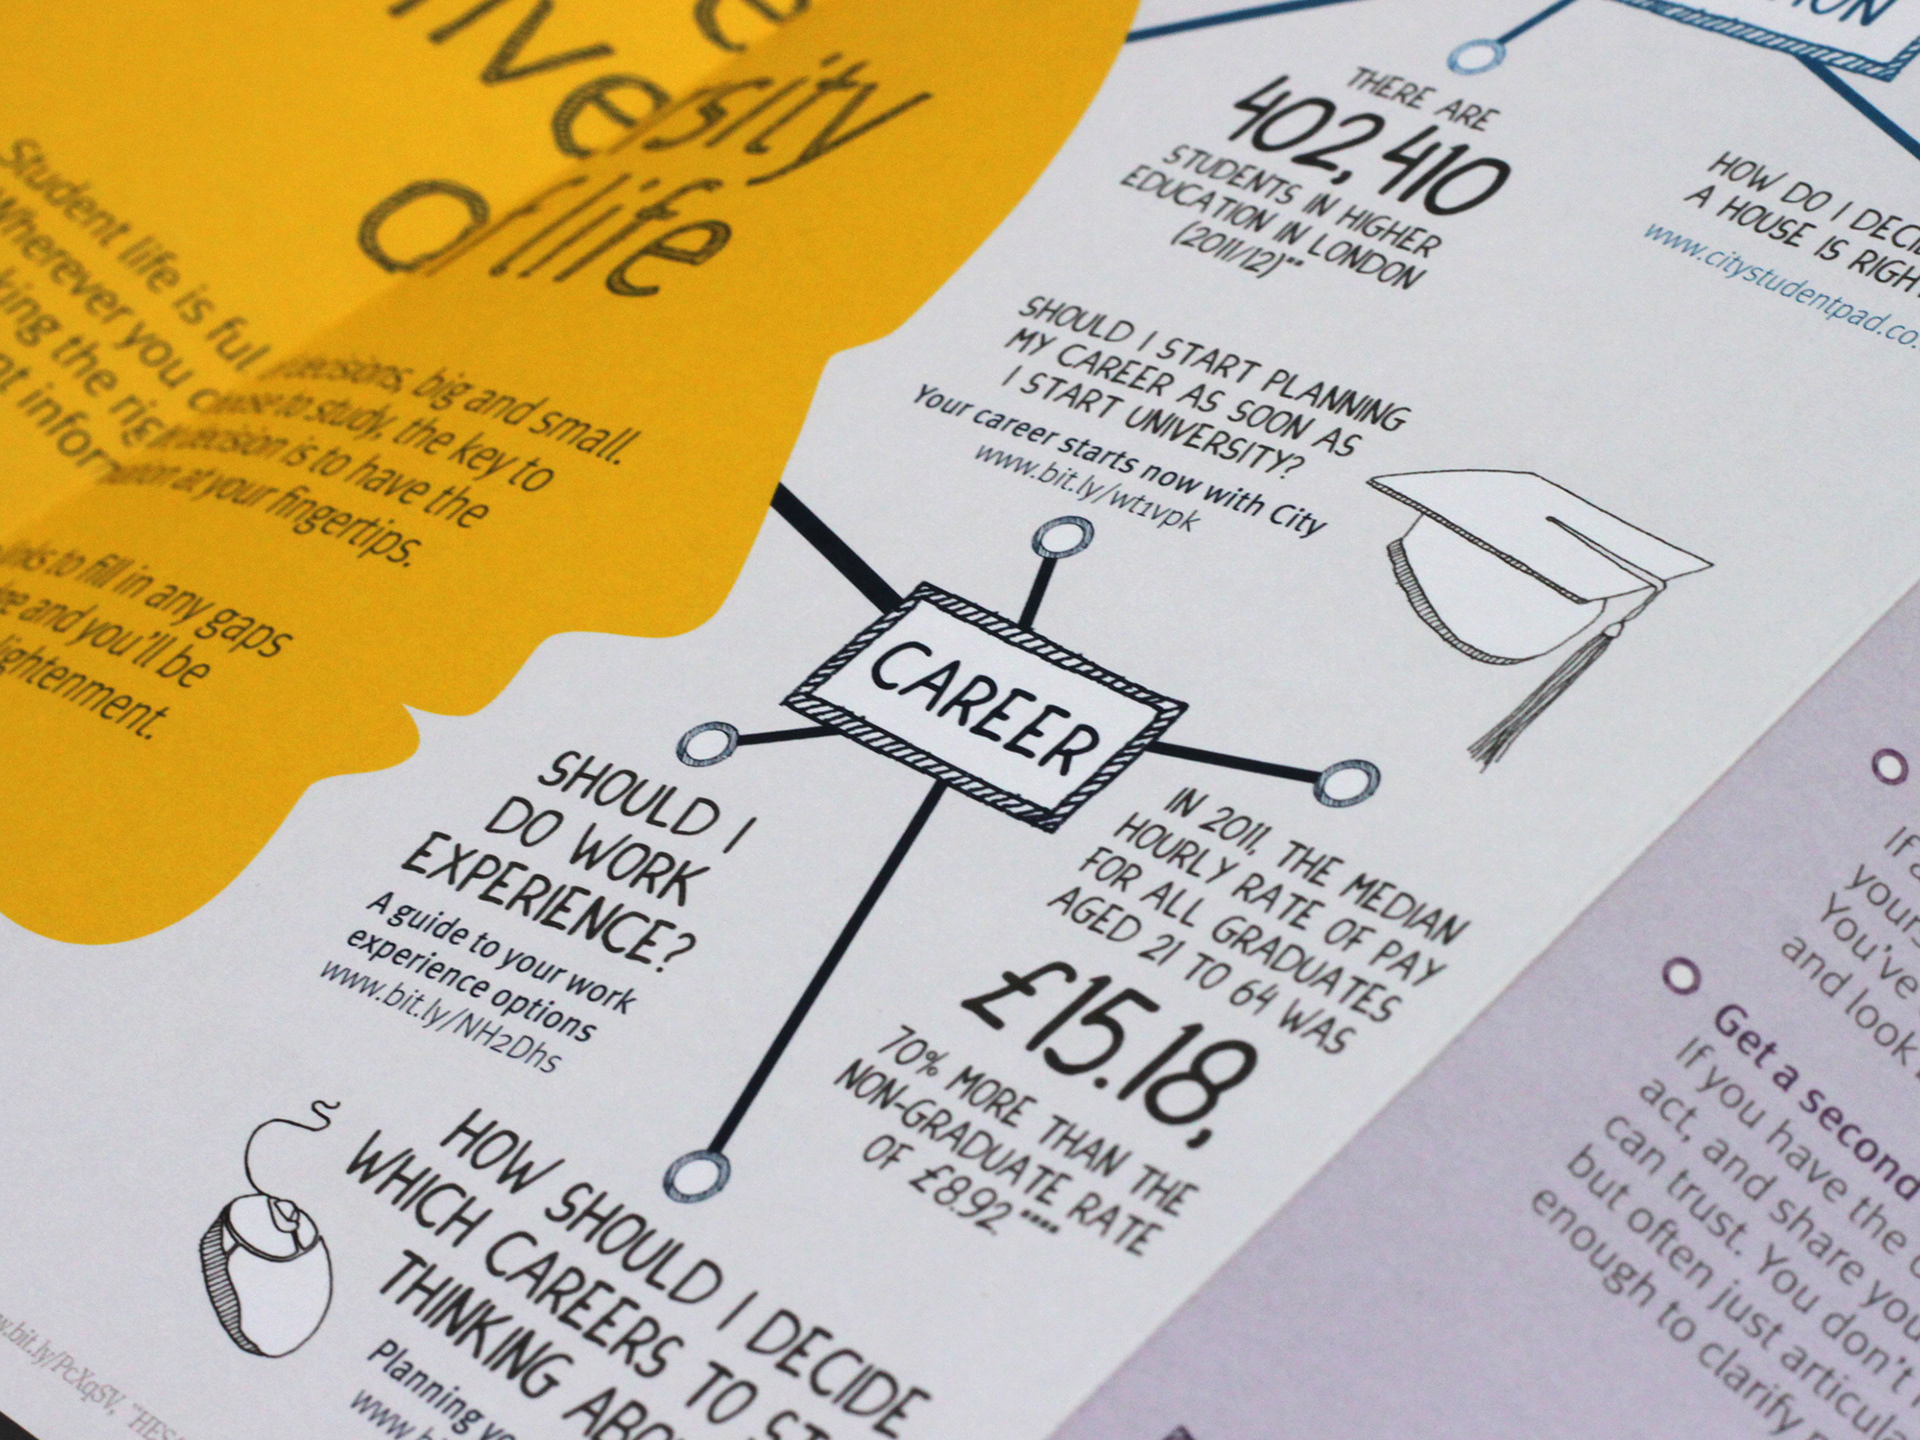 of life
Student life is full decisions, big and small.
Wherever you choose to study, the key to
the right decision is to have the
at your fingertips.
to fill in any gaps
and you'll be
THERE ARE
402,410
STUDENTS IN HIGHER
EDUCATION IN LONDON
(2011/12)**
HOW DO I
A HOUSE IS
www.citystudentpad.co.
SHOULD I START PLANNING
MY CAREER AS SOON AS
I START UNIVERSITY?
Your career starts now with City
www.bit.ly/wt1vpk
CAREER
SHOULD I
DO WORK
EXPERIENCE?
A guide to your work
experience options
www.bit.ly/NH2Dhs
IN 2011, THE MEDIAN
HOURLY RATE OF PAY
FOR ALL GRADUATES
AGED 21 TO 64 WAS
£15.18,
70% MORE THAN THE
NON-GRADUATE RATE
OF £8.92****
HOW SHOULD I DECIDE
WHICH CAREERS TO
THINKING
Planning
www.
w.bit.ly/PcXqSV, "HESA
If
You've
and look
Get a second
If you have the
act, and share
can trust. You don't
but often just
enough to clarify